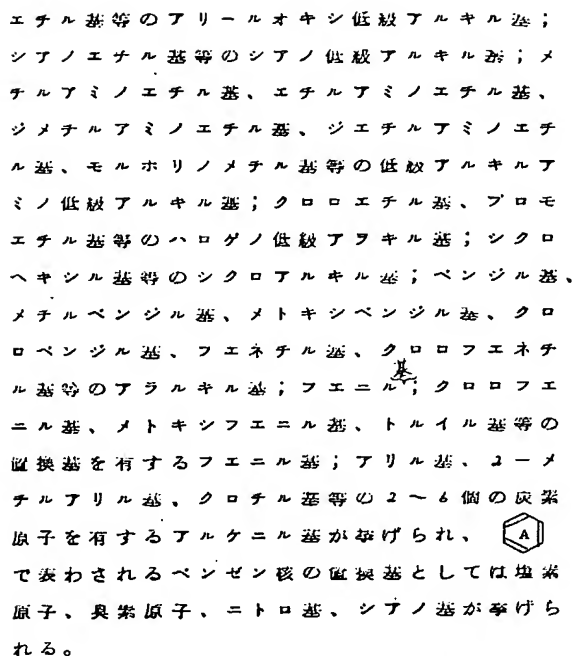 エチル基等のアリールオキシ低級アルキル基；
シアノエチル基等のシアノ低級アルキル基；メ
チルアミノエチル基、エチルアミノエチル基、
ジメチルアミノエチル基、ジエチルアミノエチ
ル基、モルホリノメチル基等の低級アルキルア
ミノ低級アルキル基；クロロエチル基、ブロモ
エチル基等のハロゲノ低級アラキル基；シクロ
ヘキシル基等のシクロアルキル基；ベンジル基、
メチルベンジル基、メトキシベンジル基、クロ
ロベンジル基、フエネチル基、クロロフエネチ
ル基等のアラルキル基；フエニル基；クロロフエ
ニル基、メトキシフエニル基、トルイル基等の
置換基を有するフエニル基；アリル基、2－メ
チルアリル基、クロチル基等の2～6個の炭素
原子を有するアルケニル基が挙げられ、A
で表わされるベンゼン核の置換基としては塩素
原子、臭素原子、ニトロ基、シアノ基が挙げら
れる。